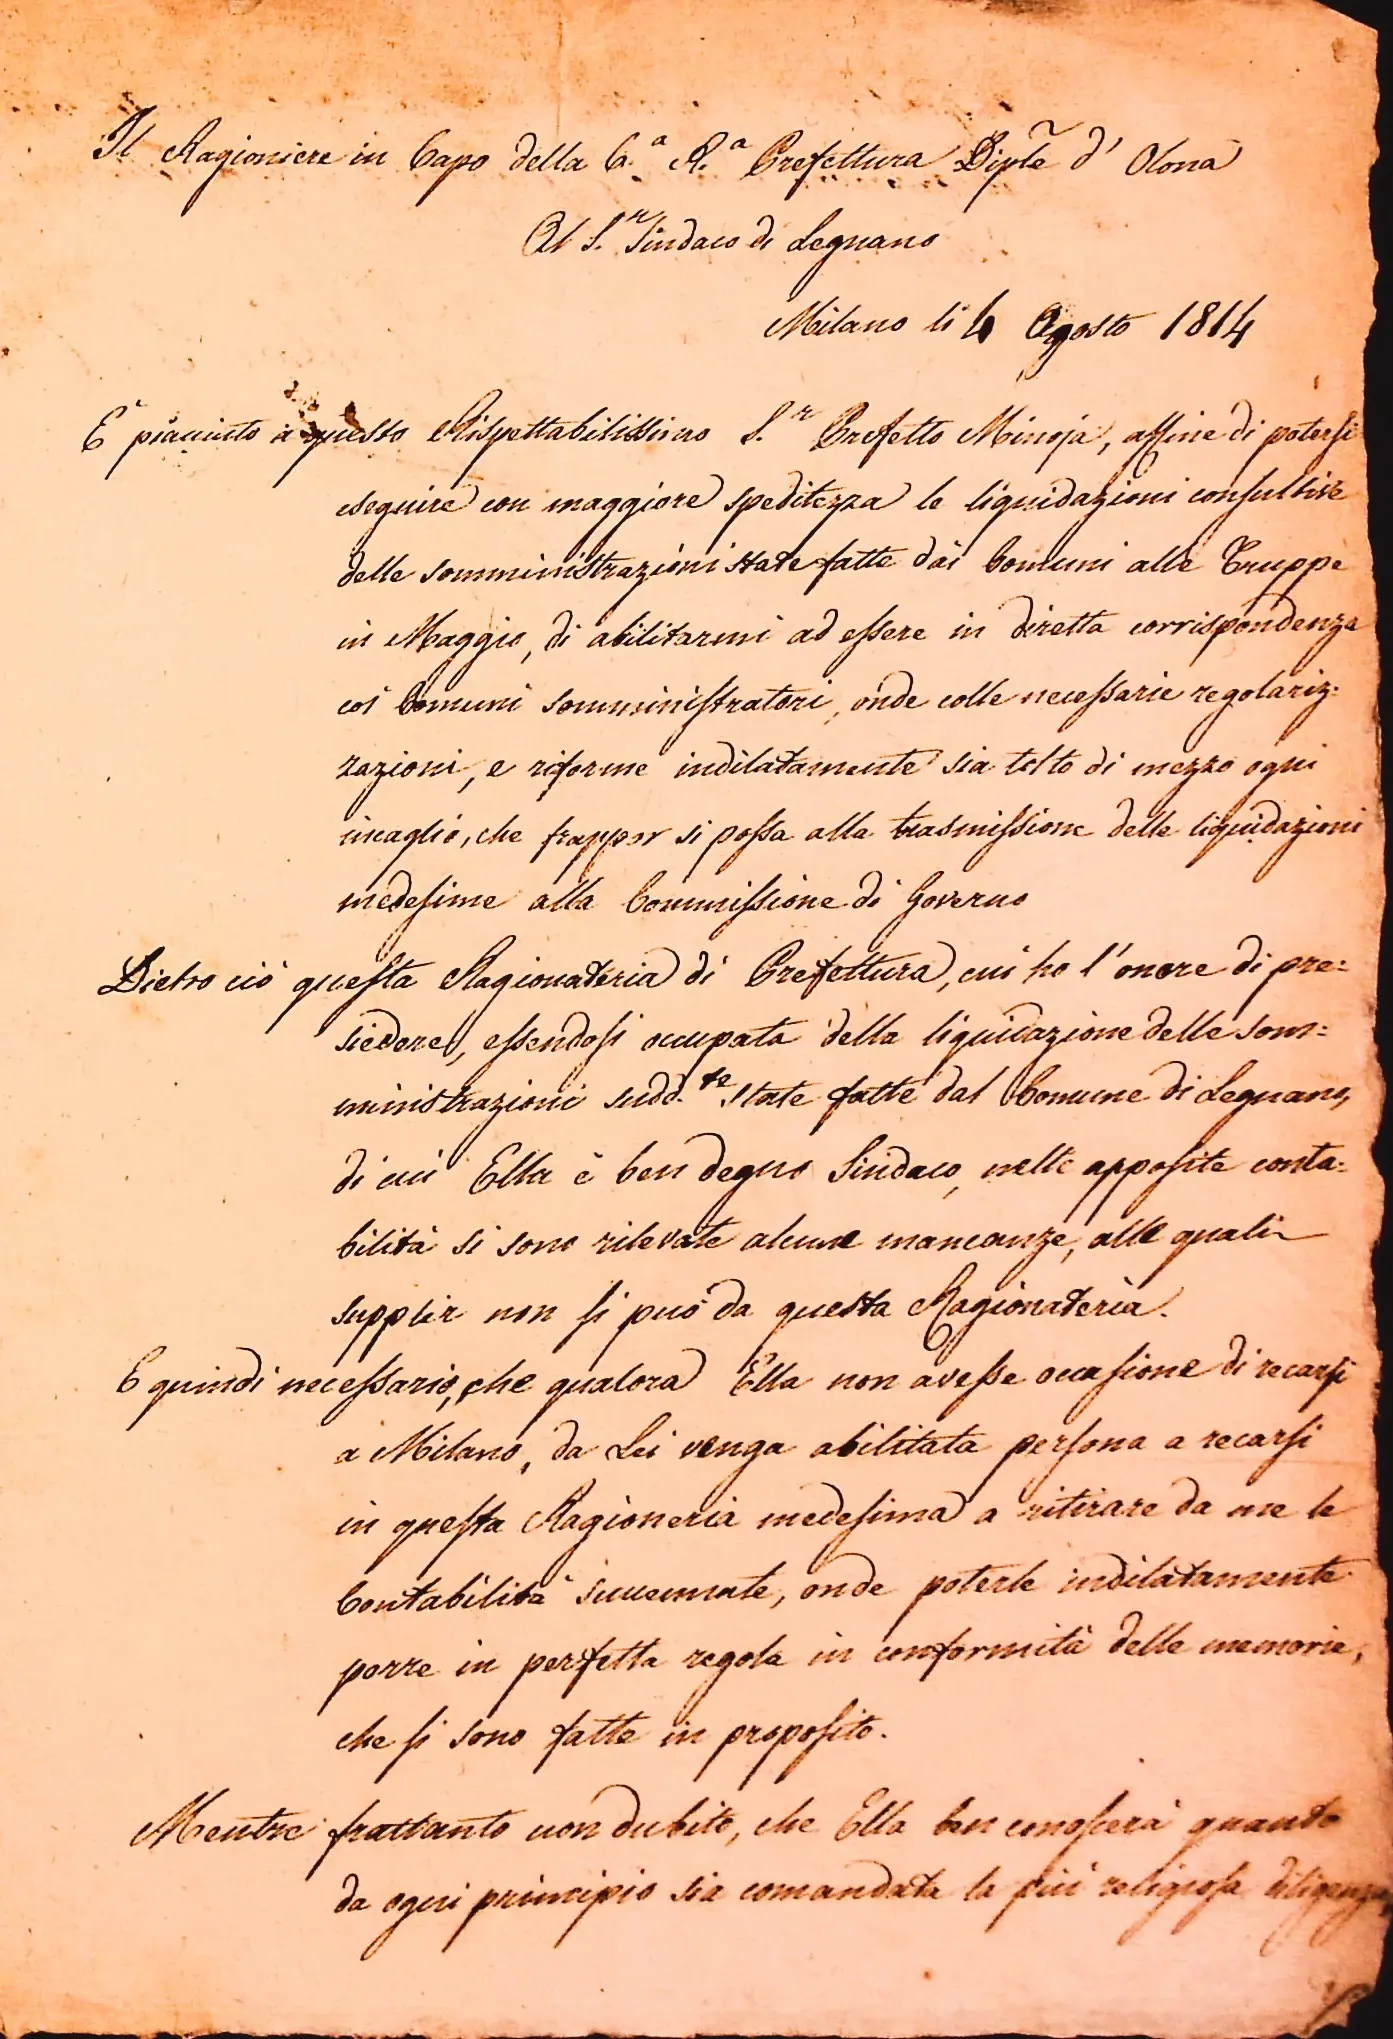 Il Ragioniere in Capo della C.ª R.ª Prefettura Diple d' Olona
Al S.r Sindaco di Legnano
Milano li 4 Agosto 1814
E' piaciuto a questo Rispettabilissimo S.r Prefetto Minoja, affine di potersi
eseguire con maggiore speditezza le liquidazioni consultive
delle somministrazioni state fatte dai Comuni alle Truppe
in Maggio, di abilitarmi ad essere in diretta corrispondenza
coi Comuni somministratori, onde colle necessarie regolariz:
zazioni, e riforme indilatamente sia tolto di mezzo ogni
incaglio, che frappor si possa alla trasmissione delle liquidazioni
medesime alla Commissione di Governo
Dietro ciò questa Ragionateria di Prefettura, cui ho l'onore di pre:
siedere, essendosi occupata della liquidazione delle som:
ministrazioni sudd.te state fatte dal Comune di Legnano,
di cui Ella è ben degno Sindaco, nelle apposite conta:
bilità si sono rilevate alcune mancanze, alle quali
supplir non si può da questa Ragionateria.
E quindi necessario, che qualora Ella non avesse occasione di recarsi
a Milano, da Lei venga abilitata persona a recarsi
in questa Ragioneria medesima a ritirare da me le
Contabilità succennate, onde poterle indilatamente
porre in perfetta regola in conformità delle memorie,
che si sono fatte in proposito.
Mentre frattanto non dubito, che Ella ben conoscerà quanto
da ogni principio sia comandata la più religiosa diligenza,